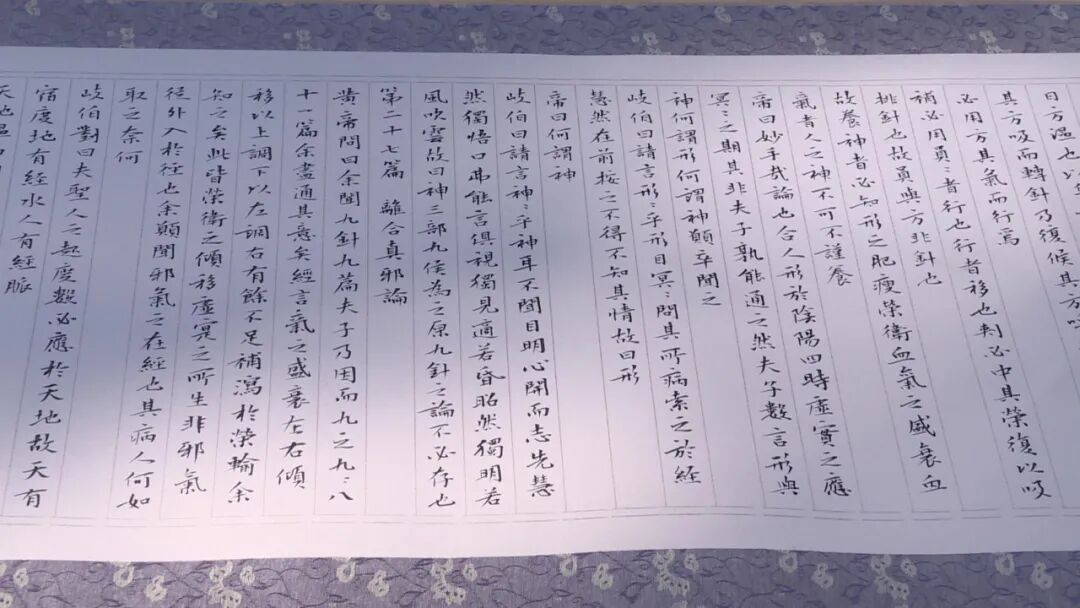 日方温也以
其方吸而轉針乃復候其方吸
必用方其氣而行焉
補必用員〻者行也行者移也刺必中其榮復以吸
排針也故員與方非針也
故養神者必知形之肥瘦榮衛血氣之盛衰血
氣者人之神不可不謹養
帝曰妙乎哉論也合人形於陰陽四時虛實之應
冥〻之期其非夫子孰能通之然夫子數言形與
神何謂形何謂神願卒聞之
岐伯曰請言形〻乎形目冥〻問其所病索之於經
慧然在前按之不得不知其情故曰形
帝曰何謂神
岐伯曰請言神〻乎神耳不聞目明心開而志先慧
然獨悟口弗能言俱視獨見適若昏昭然獨明若
風吹雲故曰神三部九侯為之原九針之論不必存也
第二十七篇 離合真邪論
黄帝問曰余聞九針九篇夫子乃因而九之九〻八
十一篇余盡通其意矣經言氣之盛衰左右傾
移以上調下以左調右有餘不足補瀉於榮輸余
知之矣此皆榮衛之傾移虛实之所生非邪氣
從外入於徑也余願聞邪氣之在經也其病人何如
取之奈何
岐伯對曰夫聖人之起度數必應於天地故天有
宿度地有經水人有經脈
天地温